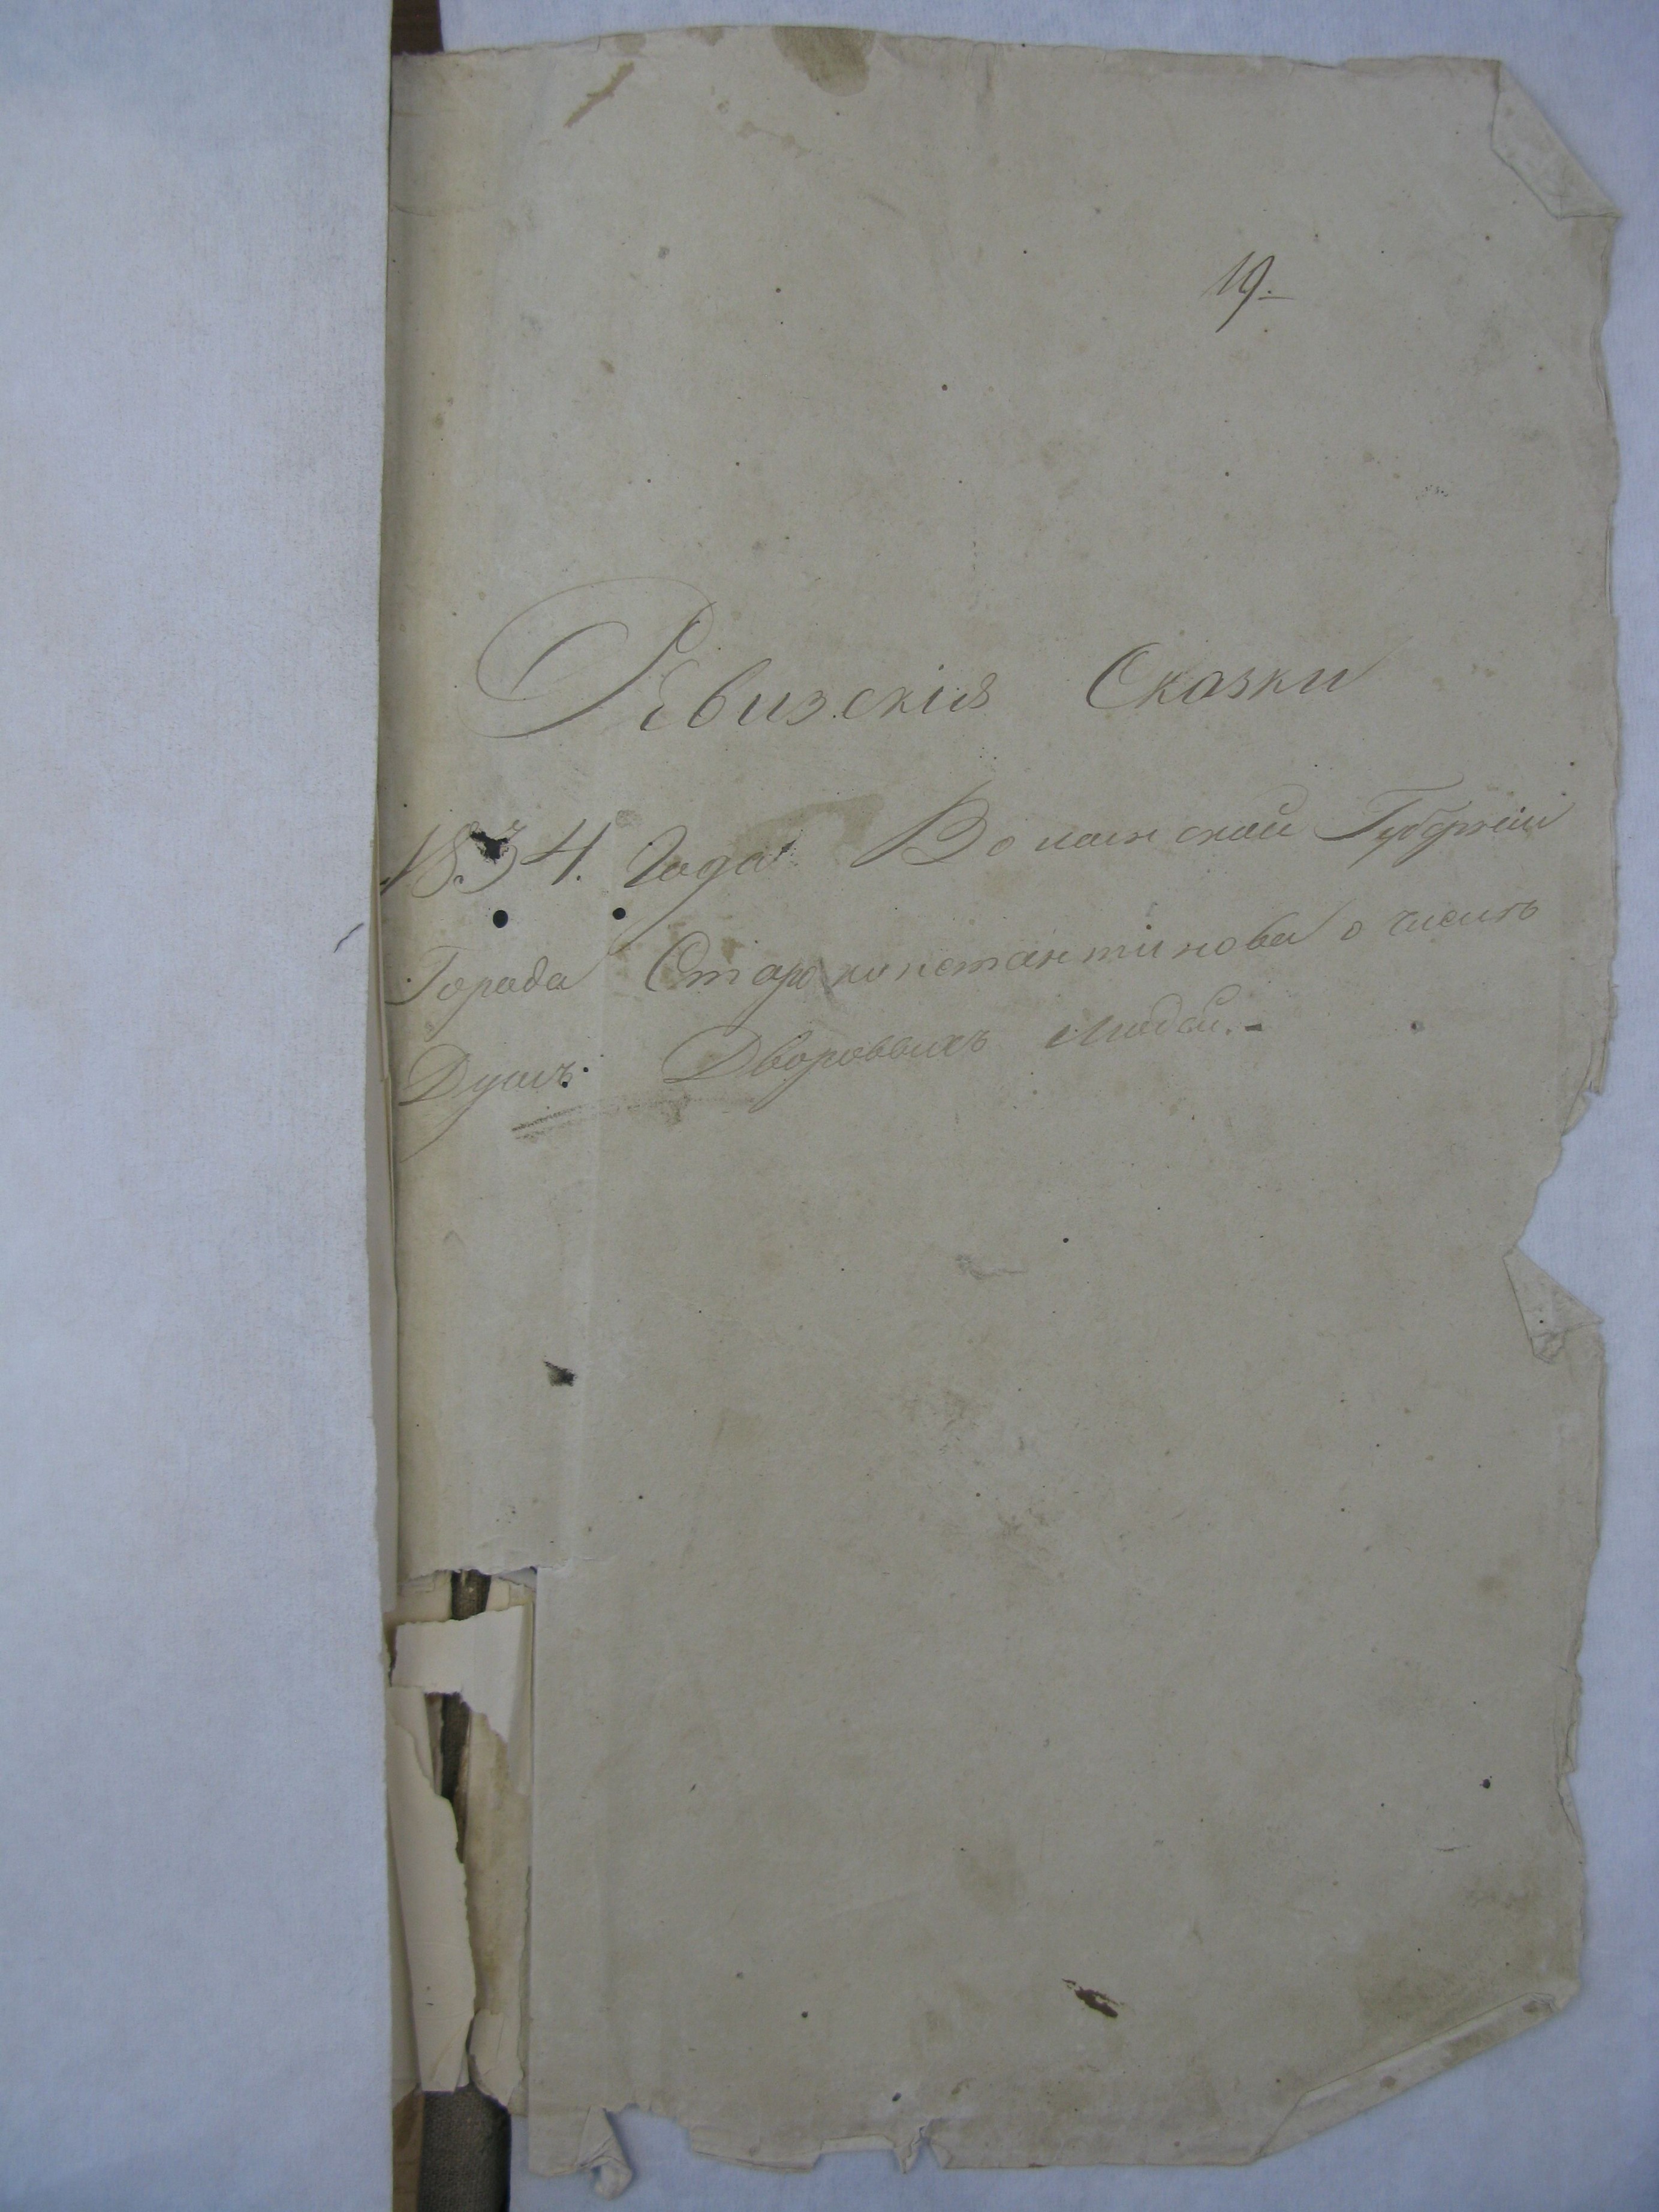 19.
Ревизскія Сказки
1834. Года Волынской Губерніи
Города Староконстантинова о числѣ
Душъ Дворовыхъ Людей.